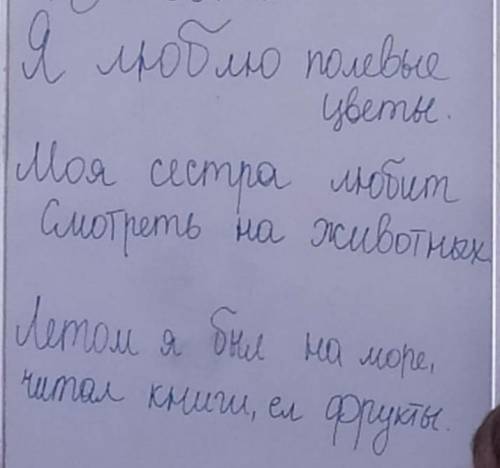 Я люблю полевые
цветы.
Моя сестра любит
Смотреть на животных
Летом я был на море,
читал книги, ел фрукты.